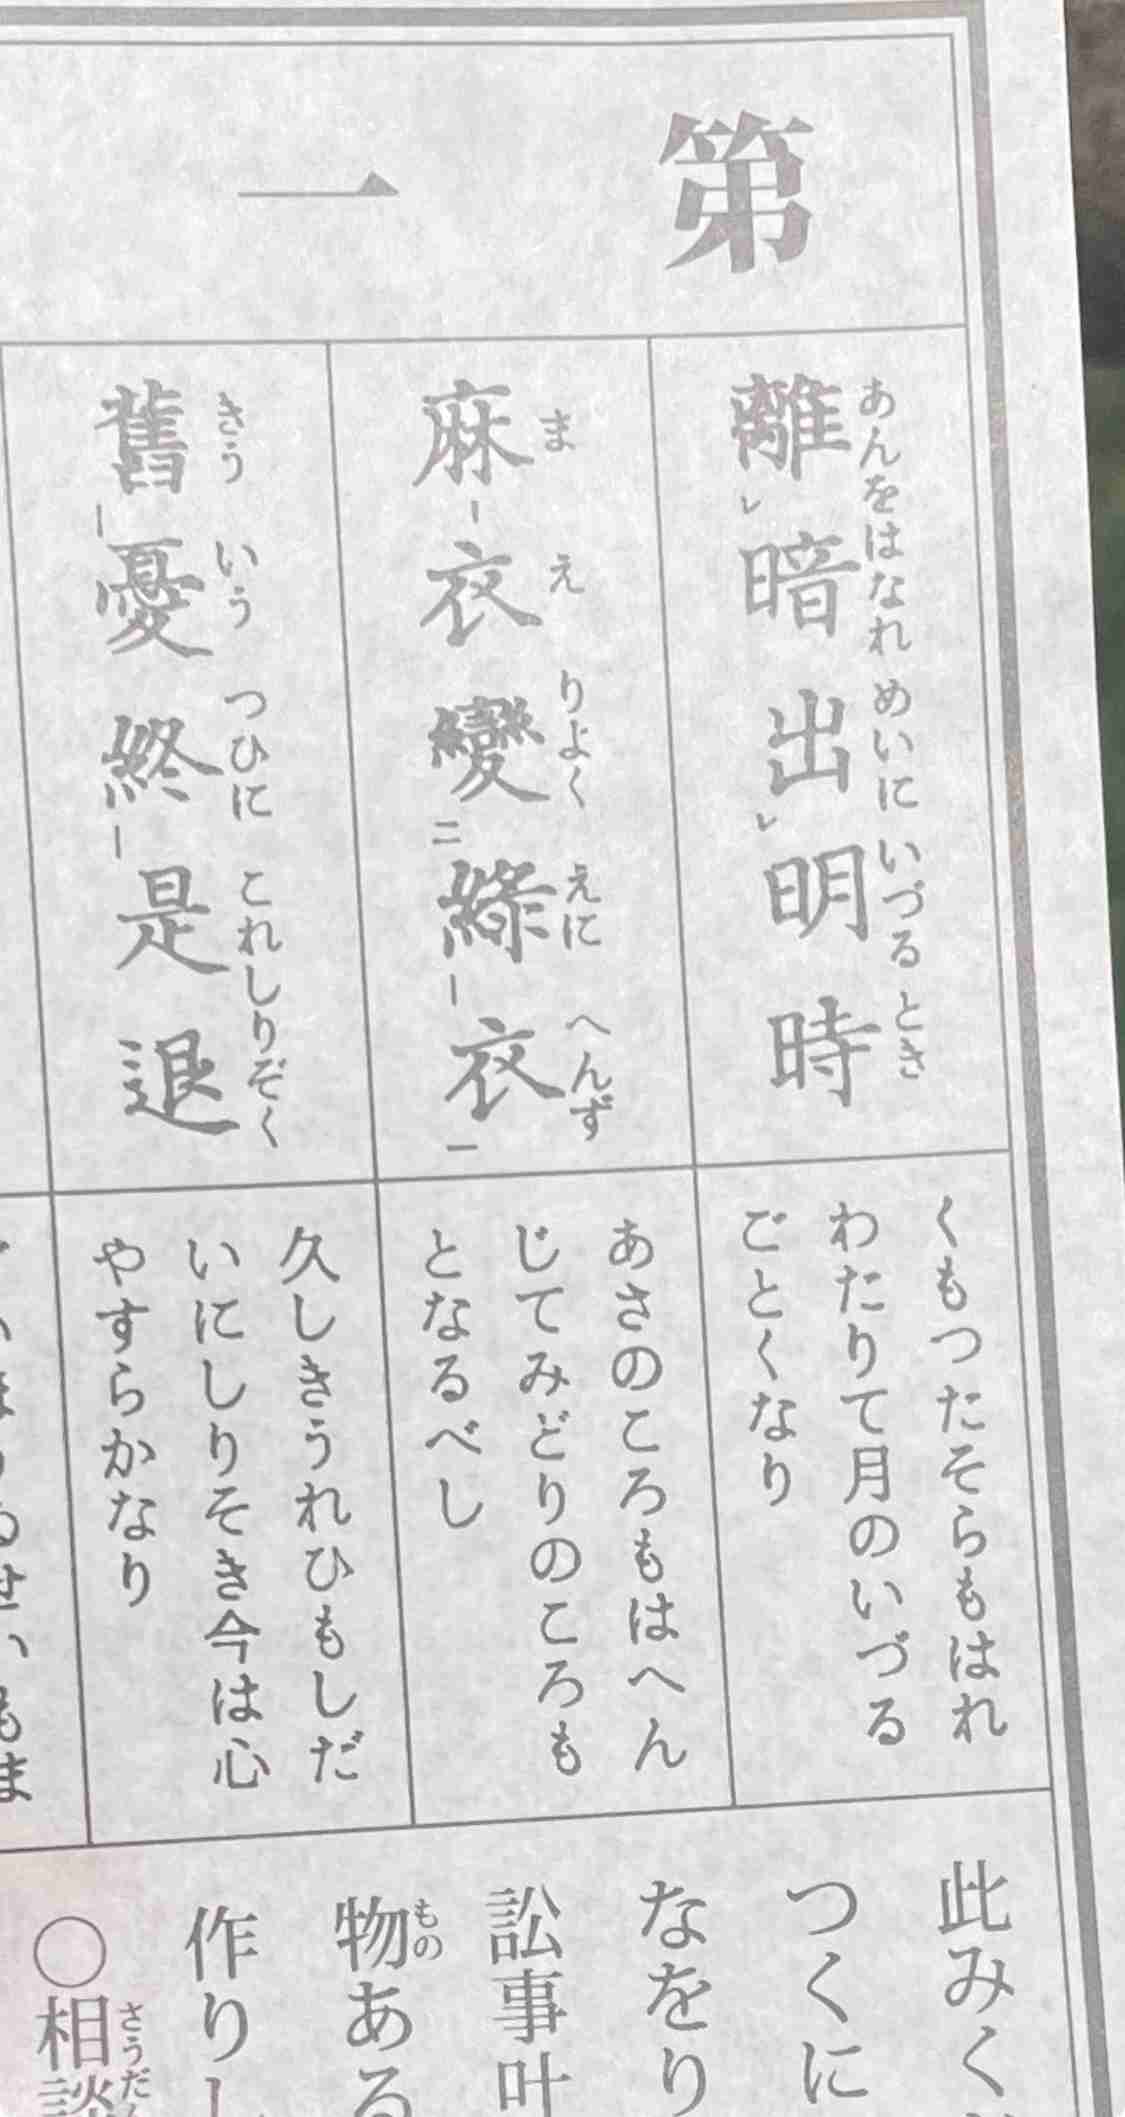 第一
離レ暗出レ明時
あんをはなれ めいに いづる とき
くもつたそらもはれ
わたりて月のいづる
ごとくなり
麻-衣變二綠-衣一
ま え りよく えに へんず
あさのころもはへん
じてみどりのころも
となるべし
舊-憂終-是退
きう いう つひに これしりぞく
久しきうれひもしだ
いにしりそき今は心
やすらかなり
此みく
つくに
なをり
訟事叶
物ある
もの
作りし
○相談
さうだん